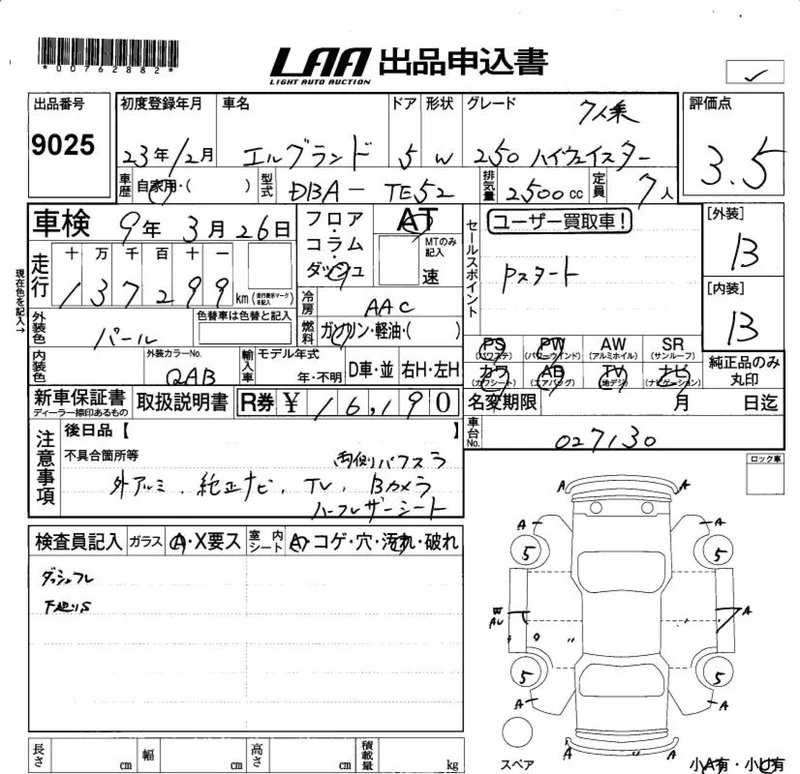 *00762882*
LAA 出品申込書
LIGHT AUTO AUCTION
✓
出品番号
9025
初度登録年月 車名 ドア 形状 グレード 7人乗 評価点
23年12月 エルグランド 5 W 250 ハイウェイスター 3.5
車歴 自家用・( ) 型式 DBA-TE52 排気量 2500cc 定員 7人
車検 9年3月26日
フロア・コラム・ダッシュ
AT
MTのみ記入
速
セールスポイント
ユーザー買取車!
Pスタート
[外装]
B
[内装]
B
現在色を記入→
走行
十 万 千 百 十 一
137299 km (走行表示マークを記入)
冷房 AAC
燃料 ガソリン・軽油・( )
外装色 パール
色替車は色替と記入
PS (パワステ) PW (パワーウインド) AW (アルミホイル) SR (サンルーフ)
カワ (カワシート) AB (エアバッグ) TV (地デジ) ナビ (ナビゲーション)
純正品のみ丸印
内装色
外装カラーNo.
QAB
輸入車 モデル年式
年・不明
D車・並 右H・左H
新車保証書
ディーラー捺印あるもの
取扱説明書
R券 ¥ 16,190
名変期限 月 日迄
車台No. 027130
注意事項
後日品【 】
不具合箇所等
両側パワスラ
外アルミ、純正ナビ、TV、Bカメラ
ハーフレザーシート
ロック車
検査員記入 ガラス A・X要ス 室内シート A・コゲ・穴・汚れ・破れ
ダッシュフレ
下廻りS
A A
A A
5 5
W
AU
A
5 5
A A
A A
スペア
長さ cm 幅 cm 高さ cm 積載量 kg
小A有・小U有